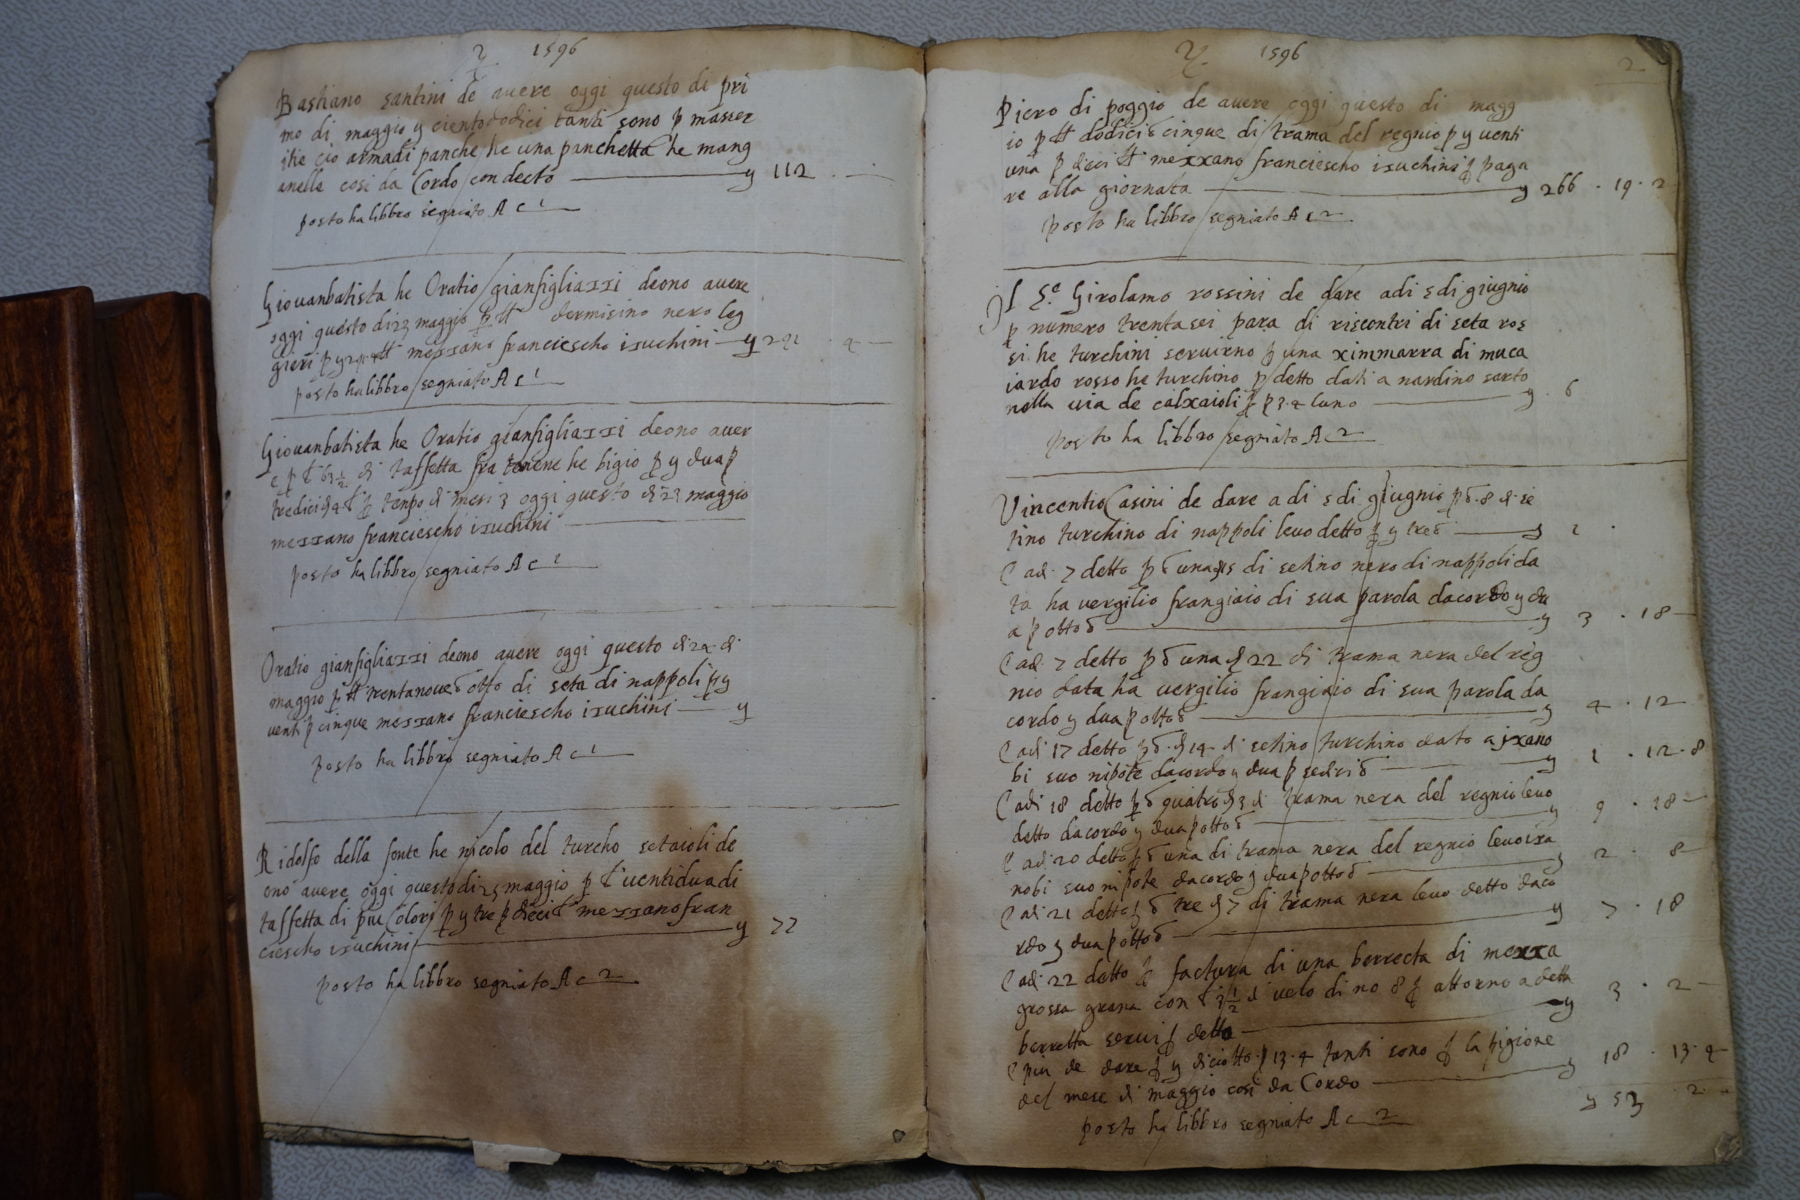 1596
Bastiano santini de avere oggi questo di pri
mo di maggio y cientododici tanti sono p masser
itie cio armadi panche he una panchetta he mang
anella cosi da Cordo con decto y 112
posto ha libbro segniato A c 1
Giovanbatista he Oratio gianfigliazzi deono avere
oggi questo di 23 maggio p dermisino nero leg
gieri p y mezzano franciescho izuchini y
posto ha libbro segniato A c 1
Giovanbatista he Oratio gianfigliazzi deono aver
e p di taffetta fra tanene he bigio p y dua p
tredici tenpo di mesi 3 oggi questo di 23 maggio
mezzano franciescho izuchini
posto ha libbro segniato A c 1
Oratio gianfigliazzi deono avere oggi questo di 24 di
maggio p trentanove otto di seta di nappoli p y
venti p cinque mezzano franciescho izuchini y
posto ha libbro segniato A c 1
Ridolfo della fonte he nicolo del turcho setaioli de
ono avere oggi questo di 25 maggio p ventidua di
taffetta di piu Colori p y tre p dieci mezzano fran
ciescho izuchini y 77
posto ha libbro segniato A c 2
1596
2
Piero di poggio de avere oggi questo di magg
io p dodici cinque di trama del regnio p y venti
una p dieci mezzano franciescho izuchini p paga
re alla giornata y 266 . 19 . 2
posto ha libbro segniato A c 2
Il Se Girolamo rossini de dare adi 5 di giugnio
p numero trentasei para di riscontri di seta ros
si he turchini servirno p una zimmarra di muca
iardo rosso he turchino p detto dati a nardino sarto
nella via de calzaioli p p 3.4 luno y . 6
posto ha libbro segniato A c 2
Vincentio Casini de dare adi 5 di giugnio p 8 di se
tino turchino di nappoli levo detto p y tre y 2 .
E adi 7 detto p una di setino nero di nappoli da
ta ha vergilio frangiaio di sua parola dacordo y du
a p otto y 3 . 18
E adi 7 detto p una 22 di trama nera del reg
nio data ha vergilio frangiaio di sua parola da
cordo y dua p otto y 4 . 12
E adi 17 detto p 14 di setino turchino dato a jzano
bi suo nipote dacordo y dua p sedici y 1 . 12 . 8
E adi 18 detto p quatro 3 di trama nera del regnio levo
detto dacordo y dua p otto y 9 . 18
E adi 20 detto p una di trama nera del regnio levo iza
nobi suo nipote dacordo y dua p otto y 2 . 8
E adi 21 detto p tre 7 di trama nera levo detto daco
rdo y dua p otto y 7 . 18
E adi 22 detto p factura di una berrecta di mezza
grossa grana con 3 1/2 di velo di no 8 p attorno a detta
berretta servi p detto y 3 . 2
E piu de dare p y diciotto p 13.4 tanti sono p la pigione
del mese di maggio cosi da Cordo y 18 . 13 . 4
y 53 . 2
posto ha libbro segniato A c 2